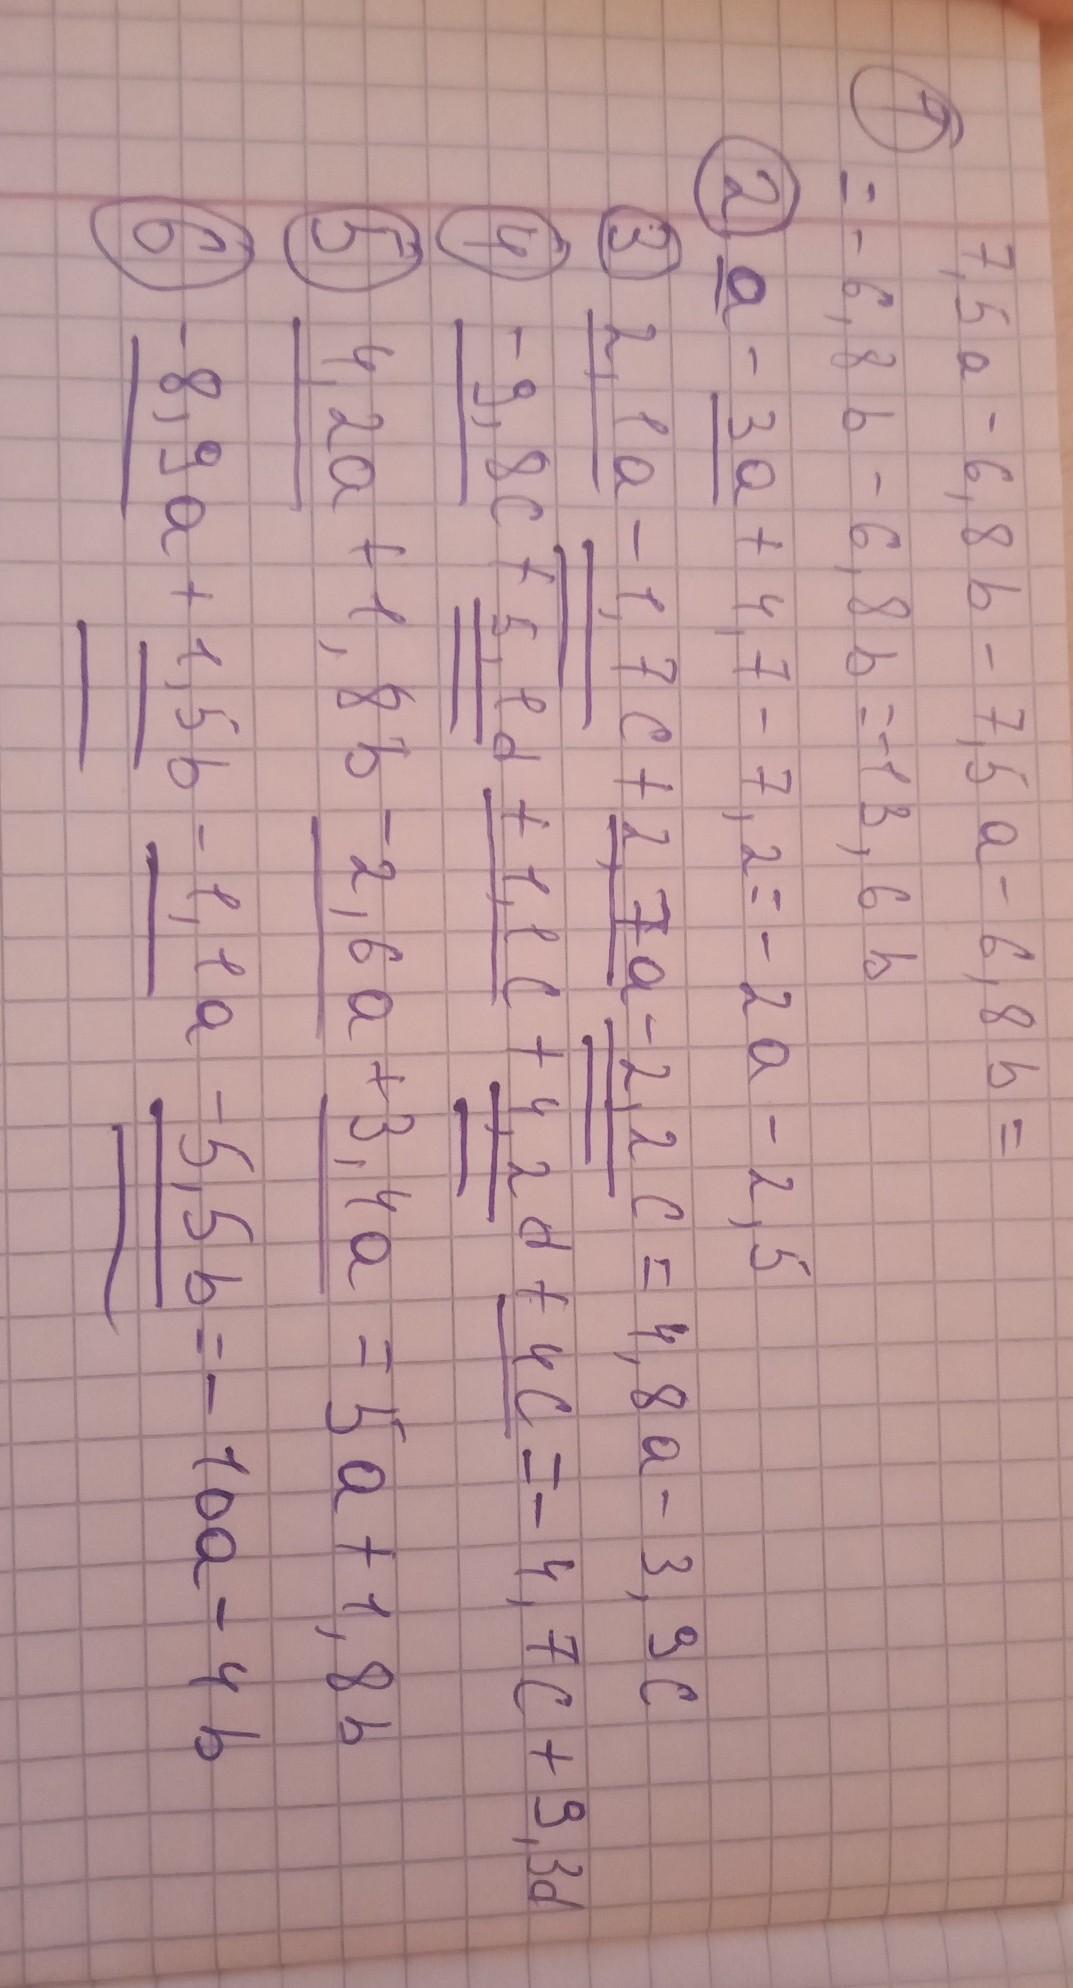 ① 7,5a - 6,8b - 7,5a - 6,8b =
= - 6,8b - 6,8b = -13,6b
② a - 3a + 4,7 - 7,2 = - 2a - 2,5
③ 2,1a - 1,7c + 2,7a - 2,2c = 4,8a - 3,9c
④ - 9,8c + 5,1d + 1,1c + 4,2d + 4c = - 4,7c + 9,3d
⑤ 4,2a + 1,8b - 2,6a + 3,4a = 5a + 1,8b
⑥ - 8,9a + 1,5b - 1,1a - 5,5b = - 10a - 4b